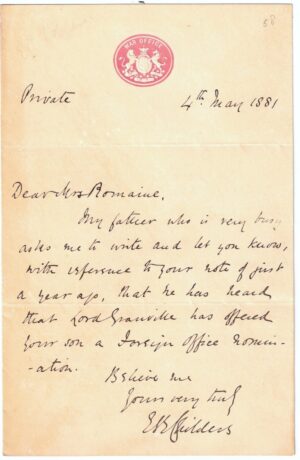 58
WAR OFFICE
Private
4th May 1881
Dear Mrs Romaine,
My father who is very busy
asks me to write and let you know,
with reference to your note of just
a year ago, that he has heard
that Lord Granville has offered
your son a Foreign Office nomin-
-ation.
Believe me
Yours very truly
Childers